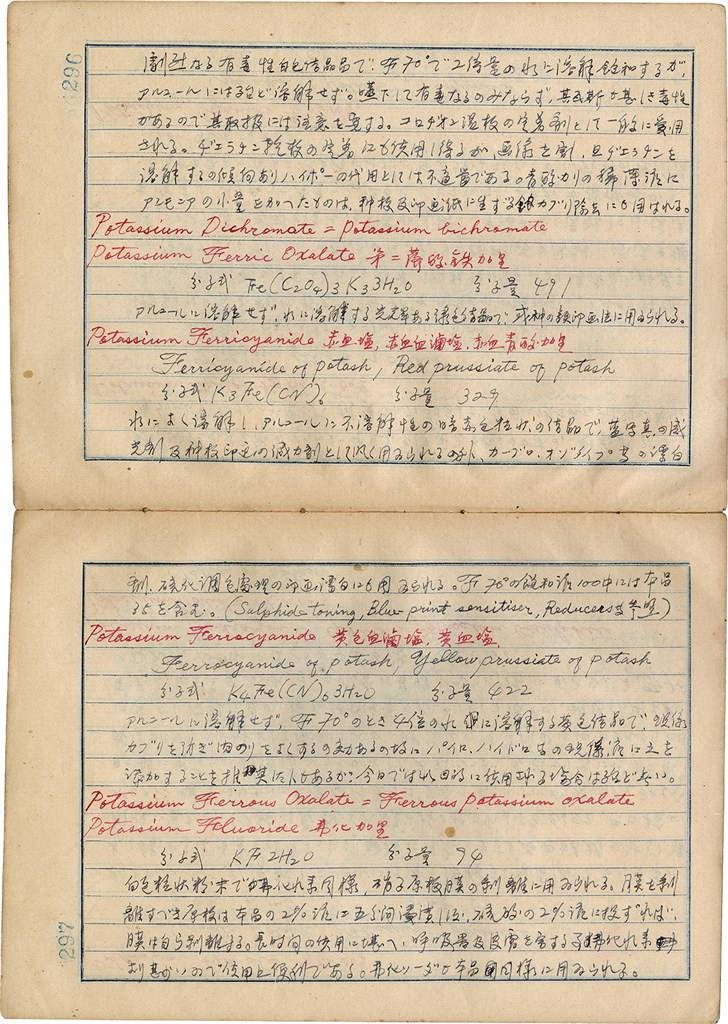 296
劇烈なる有毒性白色結晶品で、F70°で2倍量の水に溶解飽和するが、
アルコールには殆ど溶解せず。嚥下して有毒なるのみならず、其瓦斯が甚しき毒性
があるので其取扱には注意を要する。コロヂオン湿板の定着剤として一般に愛用
される。ゼラチン乾板の定着にも使用し得るが、画像を害し、且ゼラチンを
溶解するの傾向ありハイポーの代用としては不適当である。青酸カリの稀薄液に
アンモニアの小量を加へたものは、種板及印画紙に生ずるカブリ除去にも用ゐれる。
Potassium Dichromate = Potassium bichromate
Potassium Ferric Oxalate 第二蓚酸鉄加里
分子式 Fe(C2O4)3K3 3H2O 分子量 491
アルコールに溶解せず、水に溶解する光沢ある緑色結晶で、或種の鉄印画法に用ゐられる。
Potassium Ferricyanide 赤血塩, 赤血滷塩, 赤血青酸加里
Ferricyanide of potash, Red prussiate of potash
分子式 K3Fe(CN)6 分子量 329
水によく溶解し、アルコールに不溶解性の暗赤色粒状の結晶で、藍写真の感
光剤及種板印画の減力剤として広く用ゐられるの外、カーブロ、オゾタイプ等の漂白
剤、硫化調色処理の印画漂白にも用ゐられる。F70°の飽和液100中には本品
35を含む。(Sulphide toning, Blue print sensitiser, Reducers 参照)
Potassium Ferrocyanide 黄色血滷塩, 黄血塩
Ferrocyanide of potash, Yellow prussiate of potash
分子式 K4Fe(CN)6 3H2O 分子量 422
アルコールに溶解せず、F70°のとき4倍の水に溶解する黄色結晶で、現像
カブリを防ぎ肉のりをよくするの効があるの故にパイロ、ハイドロ等の現像液に之を
添加することを推奨した人もあるが、今日では此目的に使用される場合は殆ど無い。
Potassium Ferrous Oxalate = Ferrous potassium oxalate
Potassium Fluoride 弗化加里
分子式 KF 2H2O 分子量 94
白色粒状粉末で弗化水素同様、硝子原板膜の剥離に用ゐられる。膜を剥
離すべき原板は本品の2%液に五分間浸漬し後、硫酸の2%液に投ずれば、
膜は自ら剥離する。長時間の使用に堪へ、呼吸器及皮膚を害する弗化水素
より甚だしいので使用上便利である。弗化ソーダも本品同様に用ゐられる。
297